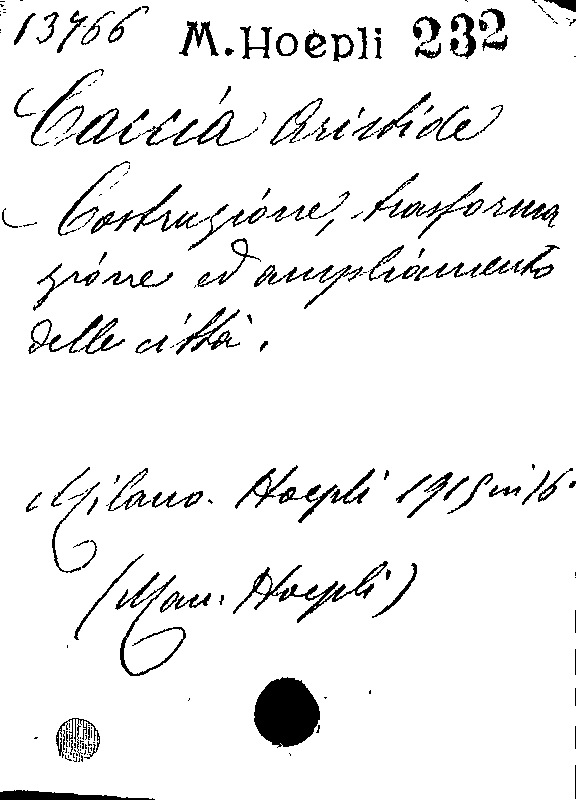 13766 M. Hoepli 232
Caccia Aristide
Costruzione, trasforma
zione ed ampliamento
delle città.
Milano. Hoepli 1915 in 16.
(Man. Hoepli)